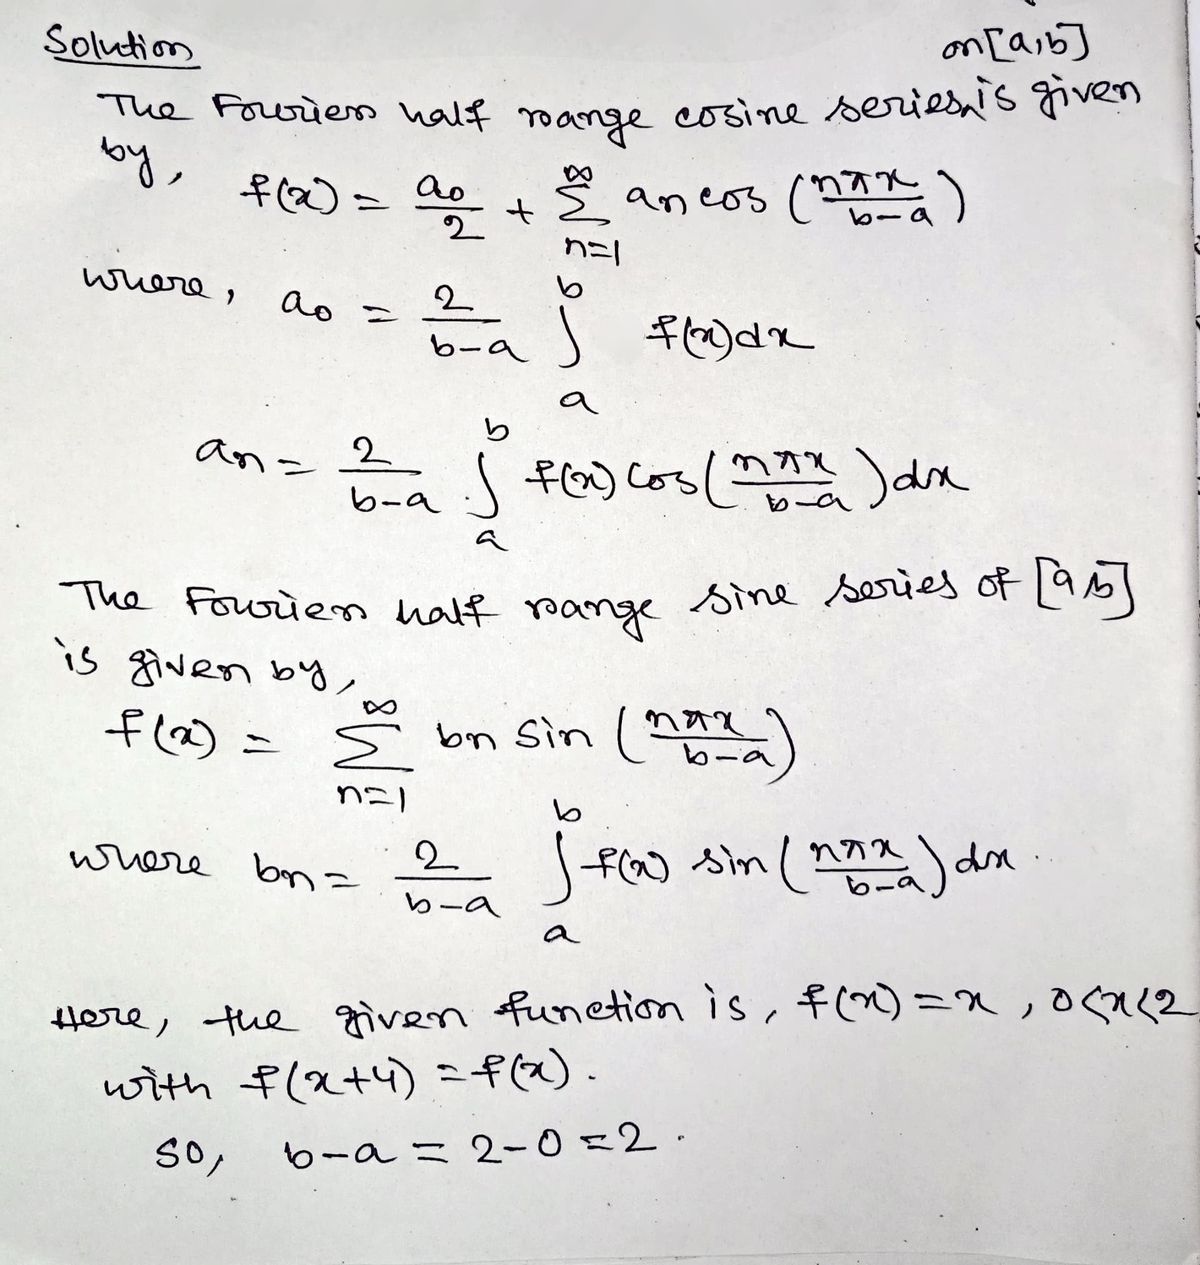 Solution
on [a,b]
The Fourier half range cosine series is given
by,
f(x) = a₀/2 + ∑_{n=1}^{∞} an cos (nπx/b-a)
where, a₀ = 2/b-a ∫_a^b f(x)dx
an = 2/b-a ∫_a^b f(x) cos(nπx/b-a) dx
The Fourier half range sine series of [a,b]
is given by,
f(x) = ∑_{n=1}^{∞} bn sin (nπx/b-a)
where bn = 2/b-a ∫_a^b f(x) sin (nπx/b-a) dx.
Here, the given function is, f(x) = x, 0<x<2
with f(x+4) = f(x).
so, b-a = 2-0 = 2.